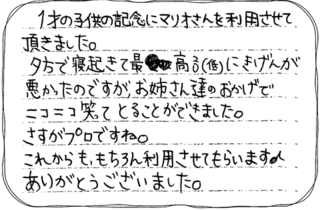 1才の子供の記念にマリオさんを利用させて
頂きました。
夕方で寝起きで最高る(低)にきげんが
悪かったのですが、お姉さん達のおかげで
ニコニコ笑ってとることができました。
さすがプロですね。
これからも、もちろん利用させてもらいます
ありがとうございました。